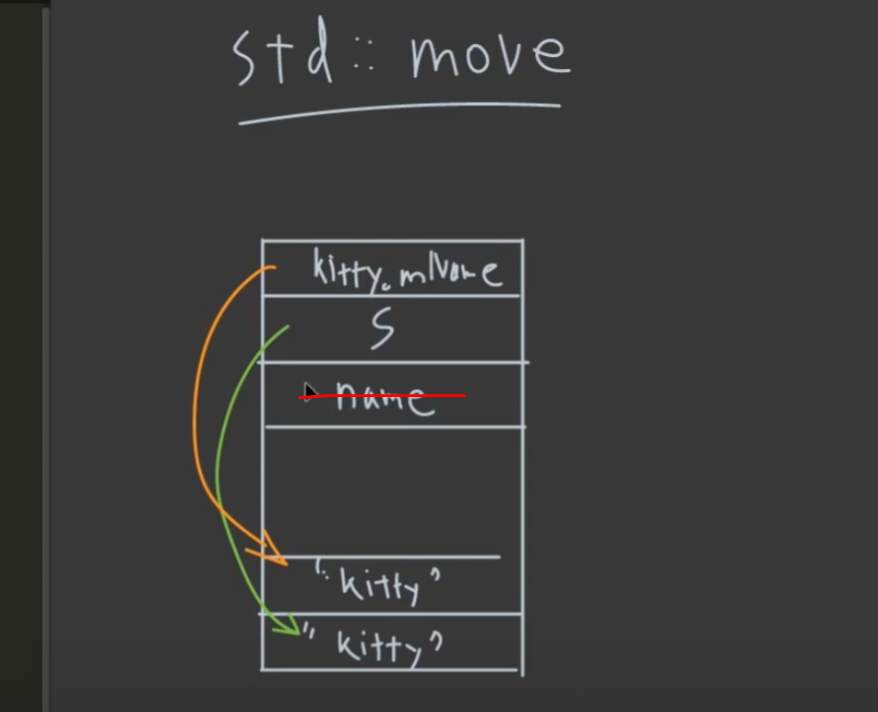 std::move
kitty.mName
S
name
"kitty"
"kitty"